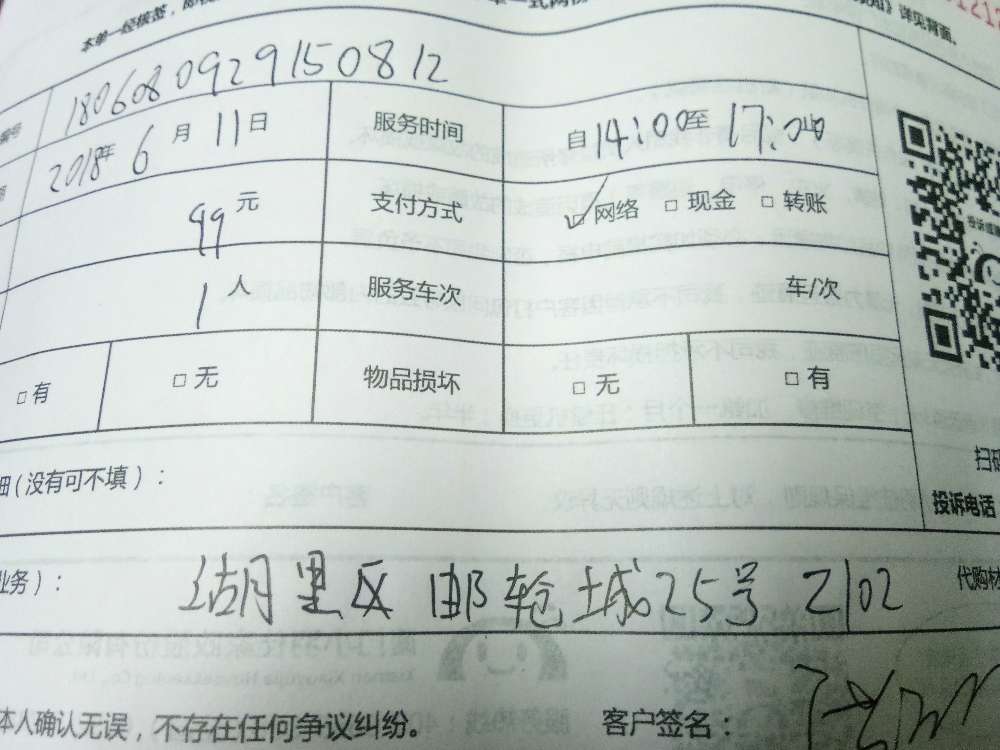 本单一经核签，
知》详见背面。
编号 180608092915 0812
2018年 6 月 11 日 服务时间 自 14:00 至 17:00
99 元 支付方式 ☑ 网络 □ 现金 □ 转账
1 人 服务车次 车/次
□ 有 □ 无 物品损坏 □ 无 □ 有
扫码
细（没有可不填）：
投诉电话
业务）： 湖里区邮轮城25号2102 代购
本人确认无误，不存在任何争议纠纷。 客户签名：